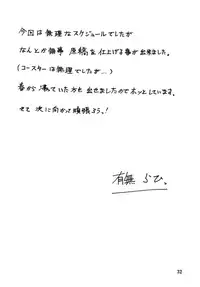 今回は無理なスケジュールでしたが
なんとか無事 原稿を仕上げる事が出来ました。
(コースターは無理でしたが…)
春から凍ていた方も出せましたのでホッとしています。
さて 次に向かって頑張ろう!
有無 らひ。
32